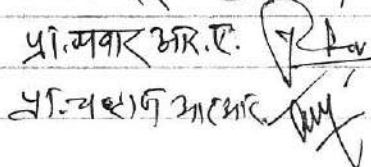 प्रा. पवार आर. ए.
प्रा. चव्हाण आर आर.